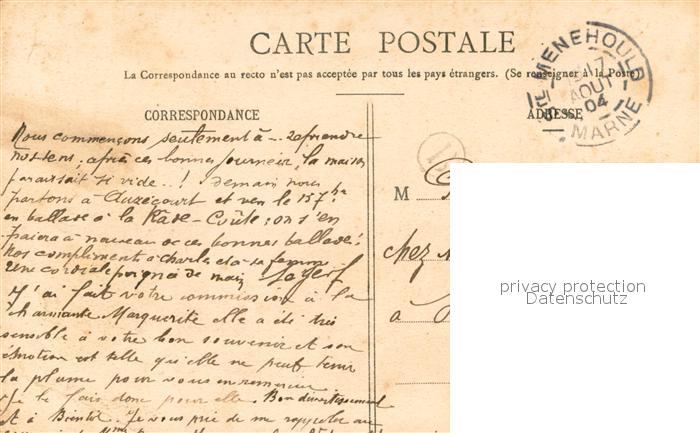 CARTE POSTALE
La Correspondance au recto n'est pas acceptée par tous les pays étrangers. (Se renseigner à la Poste)
STE MENEHOULD
17
AOUT
04
MARNE
CORRESPONDANCE
ADRESSE
Nous commençons seulement à
nos sens, après ces bonnes journées, la maison
paraissait si vide..! Demain nous
partons à Auzécourt et ven le 15 7bre
en ballade à la Côte; on s'en
paiera à nouveau de ces bonnes ballades!
Nos compliments à Charles et à sa femme
une cordiale poignée de main
J'ai fait votre commission à la
charmante Marguerite elle a été très
sensible à votre bon souvenir et son
émotion est telle qu'elle ne peut tenir
la plume pour vous en remercier
Je le fais donc pour elle. Bon divertissement
et à Bientôt. Je vous prie de me rappeler au
M
chez
à
privacy protection
Datenschutz